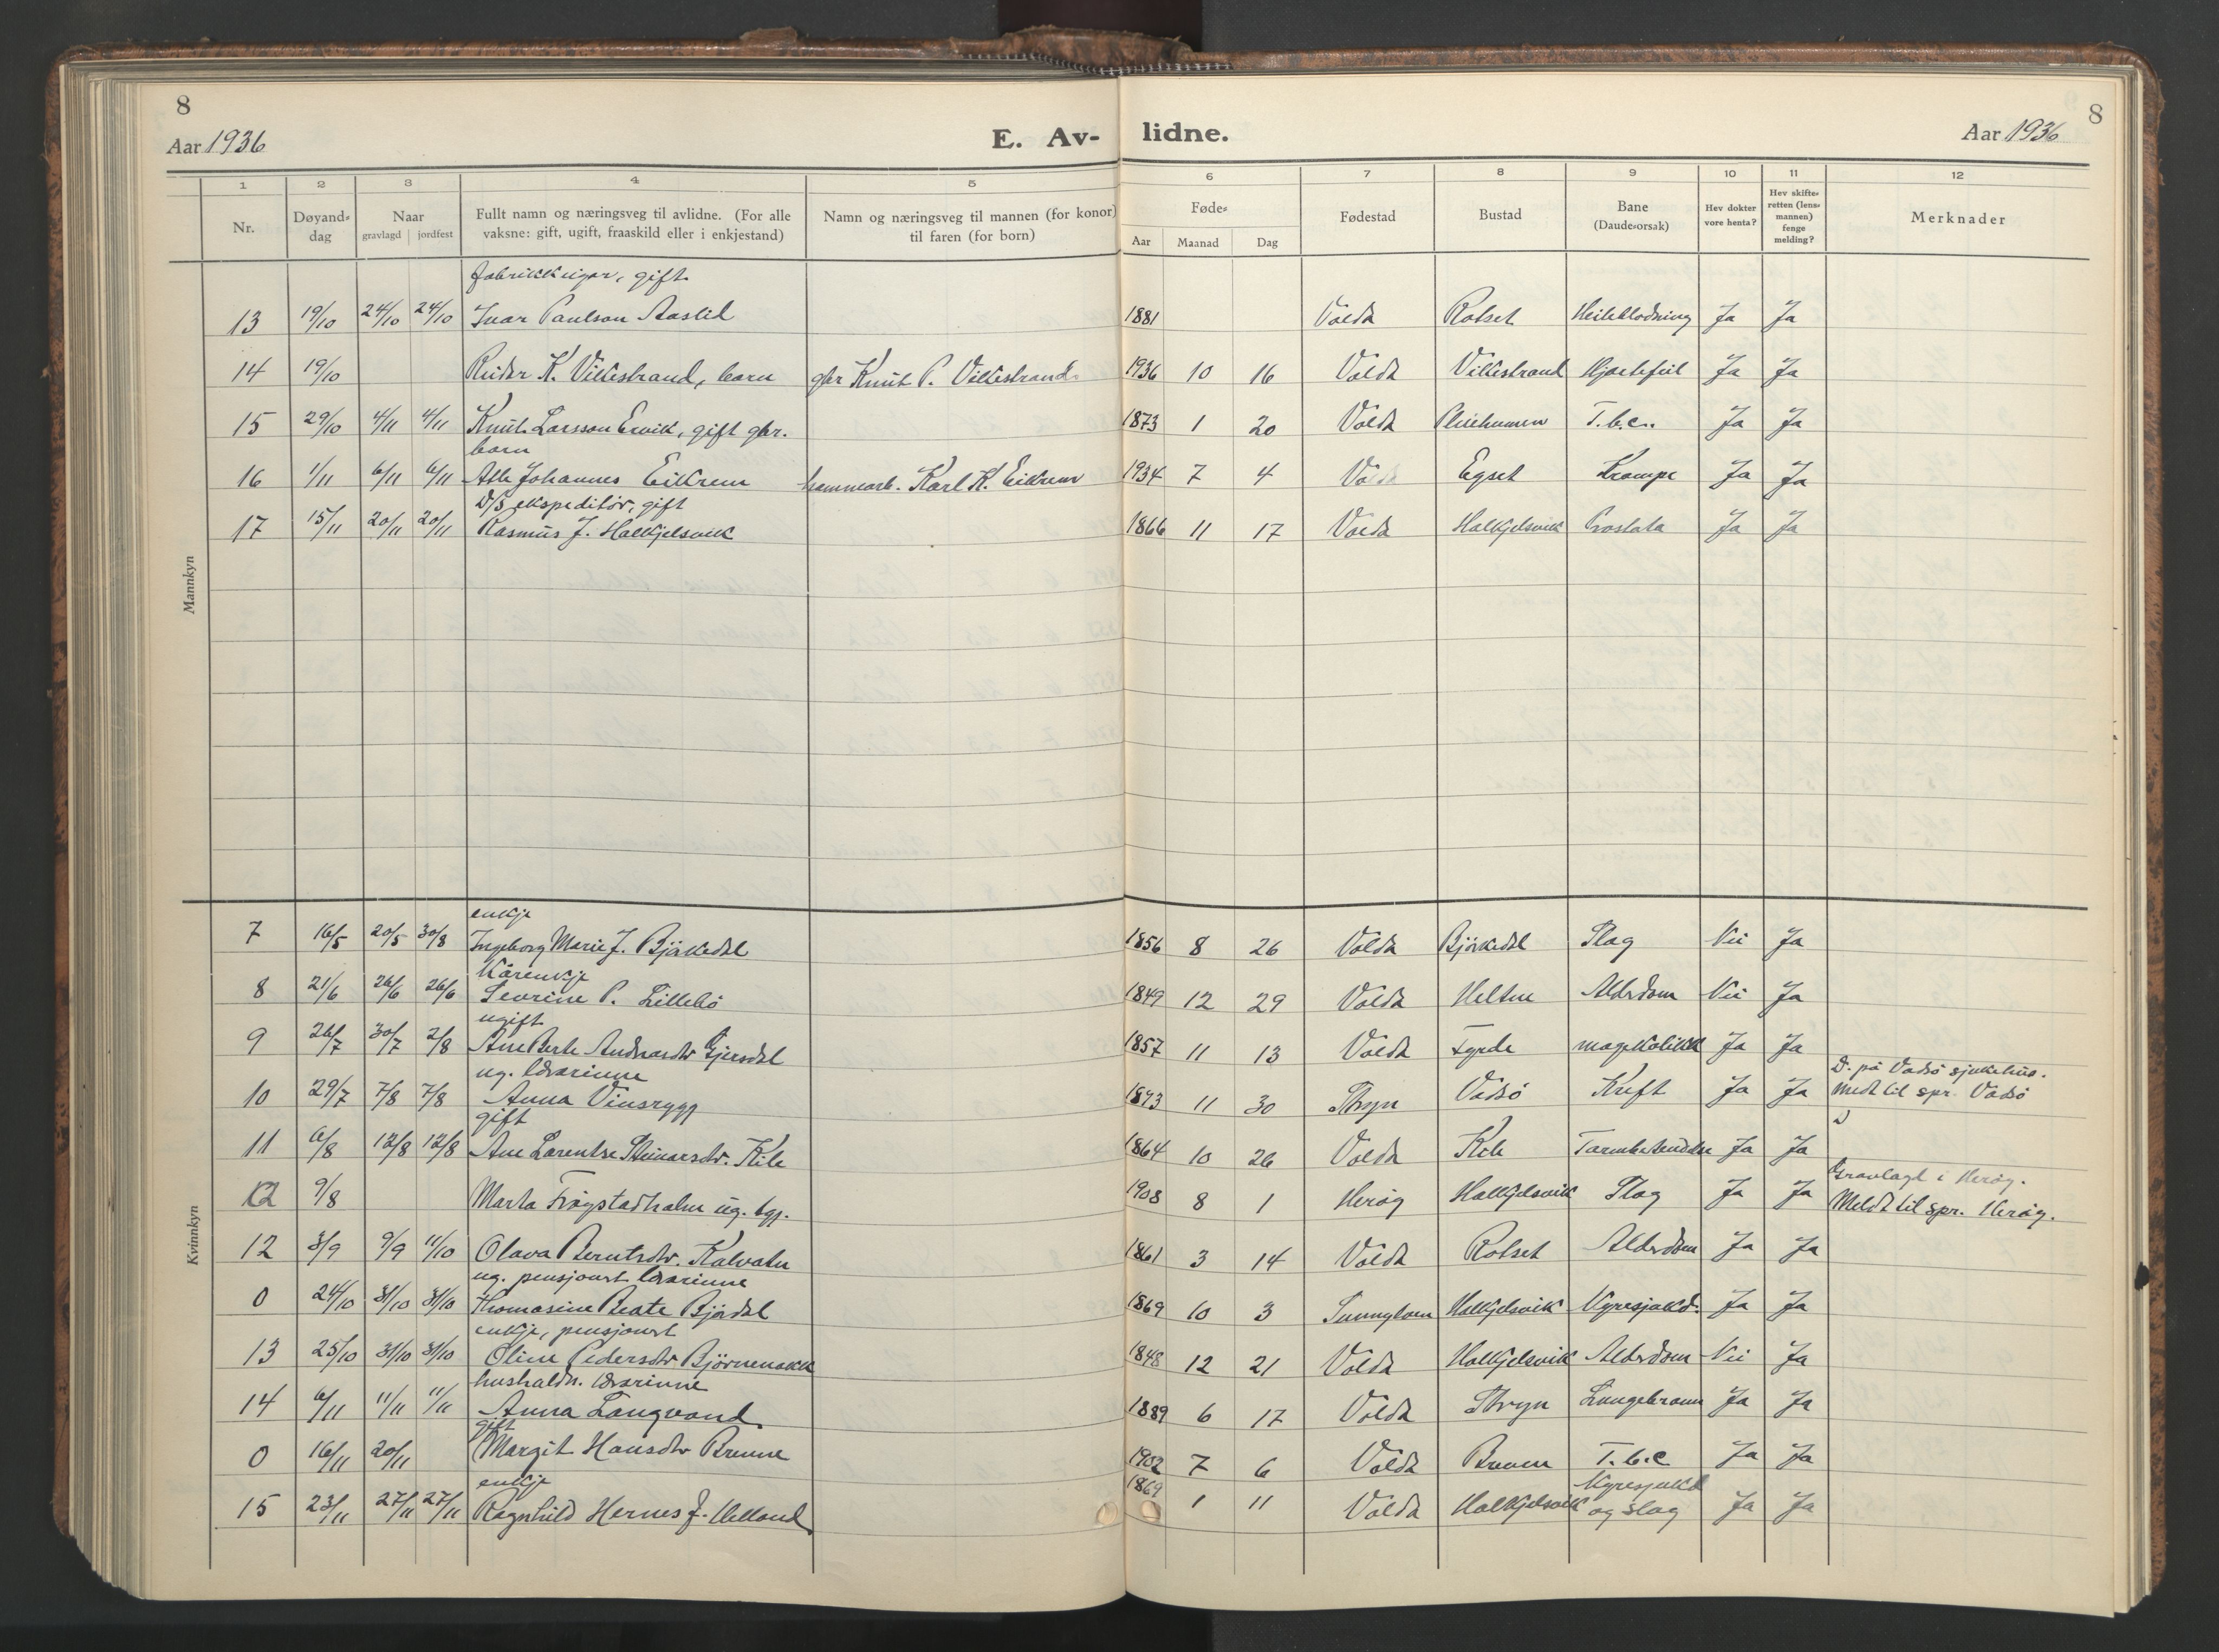 8
8
Aar 1936
E. Av-
lidne.
Aar 1936
1
2
3
4
5
6
7
8
9
10
11
12
Nr.
Døyand=
dag
Naar
gravlagd
jordfest
Fullt namn og næringsveg til avlidne. (For alle
vaksne: gift, ugift, fraaskild eller i enkjestand)
Namn og næringsveg til mannen (for konor)
til faren (for born)
Føde=
Aar
Maanad
Dag
Fødestad
Bustad
Bane
(Daude=orsak)
Hev dokter
vore henta?
Hev skifte=
retten (lens=
mannen)
fenge
melding?
Merknader
Mannkyn
fabrikkeigar, gift
13 19/10 24/10 24/10 Ivar Paulson Aaslid 1881 Volda Rotset Heileblodning Ja Ja
14 19/10 Reidar K. Vikestrand, barn gbr Knut P. Vikestrand 1936 10 16 Volda Vikestrand Hjartefeil Ja Ja
15 29/10 4/11 4/11 Knut Larsson Ervik, gift gbr. 1873 1 20 Volda T.b.c. Ja Ja
barn
16 1/11 6/11 6/11 Atle Johannes Eikrem Karl K. Eikrem 1934 7 4 Volda Egset Krampe Ja Ja
D/S ekspeditör, gift
17 15/11 20/11 20/11 Rasmus J. Halkjelsvik 1866 11 17 Volda Halkjelsvik Prostata Ja Ja
Kvinnkyn
enkje
7 16/5 20/5 30/8 Ingeborg Marie J. Björkedal 1856 8 26 Volda Björkedal Slag Nei Ja
Kårenkje
8 21/6 26/6 26/6 Sevrine P. Lillebö 1849 12 29 Volda Heltne Alderdom Nei Ja
ugift
9 26/7 30/7 2/8 Ane Berte Andreasdtr Gjersdal 1857 11 13 Volda Fyrde magekolikk Ja Ja
ug. lærarinne
10 29/7 7/8 7/8 Anna Vinsrygg 1893 11 30 Stryn Vadsö Kreft Ja Ja
D. på Vadsö sjukehus.
Meldt til spr. Vadsö
gift
11 6/8 12/8 12/8 Ane Larentse Steinarsdtr. Kile 1864 10 26 Volda Kile Ja Ja
9/8 Marta Frøystadholm ug. 1908 8 1 Heröy Halkjelsvik Slag Ja Ja
Gravlagt i Heröy.
Meldt til spr. Heröy.
12 3/9 9/9 11/10 Olava Berntsdtr. Kalvatn 1861 3 14 Volda Rotset Alderdom Ja Ja
ug. pensjonert lærarinne
0 24/10 31/10 31/10 Thomasine Beate Björdal 1869 10 3 Halkjelsvik Nyresjukd. Ja Ja
enkje, pensjonert
13 25/10 31/10 31/10 Oline Pedersdtr Björnenakk 1848 12 21 Volda Halkjelsvik Alderdom Nei Ja
hushaldn. lærarinne
14 6/11 11/11 11/11 Anna Langvand 1889 6 17 Volda Stryn Lungebrann Ja Ja
gift
0 16/11 20/11 Margit Hansdtr Brune 1902 7 6 Volda T.b.c Ja Ja
enkje
15 23/11 27/11 27/11 Ragnhild Hernes f. Helland 1869 1 11 Volda Halkjelsvik Nyresjukd
og slag Ja Ja